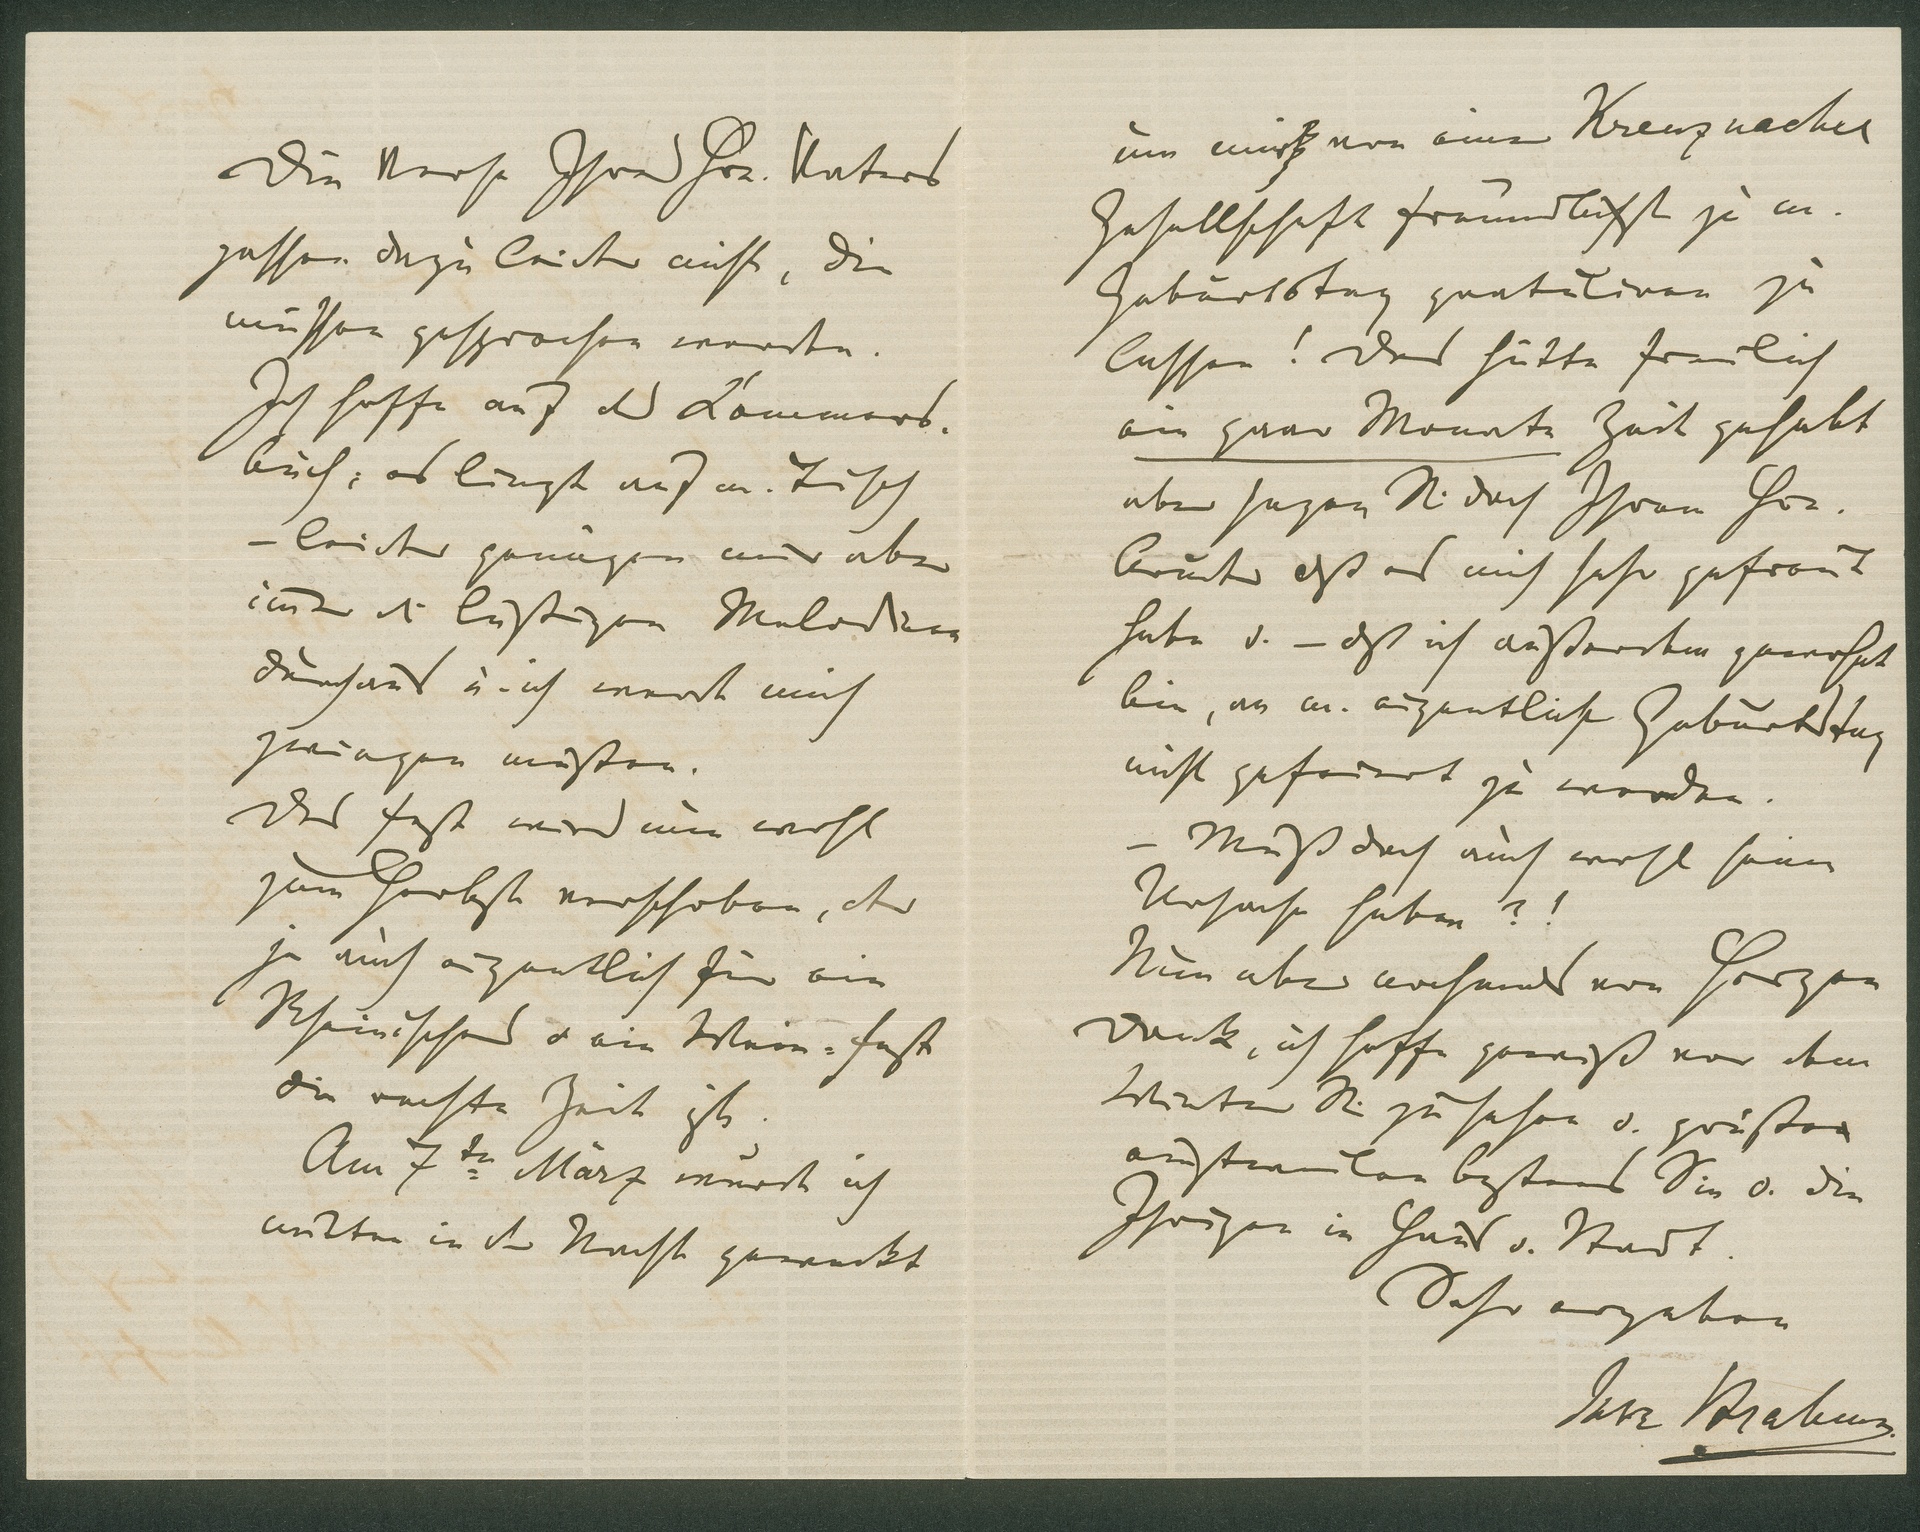 Die Verse Ihres Hrn. Vaters
passen dazu leider nicht, die
müssen gesprochen werden.
Ich hoffe auf d Commers-
buch; es liegt auf m. Tisch
– leider genügen mir aber
immer d. lustigen Melodieen
durchaus u. ich werde mich
zwingen müssen.
Das Fest wird nun wohl
zum Herbst verschoben, der
ja auch eigentlich für ein
Rheinisches u ein Wein-fest
die rechte Zeit ist.
Am 7ten März wurde ich
mitten in der Nacht geweckt
um mir von einer Kreuznacher
Gesellschaft freundlichst zu m.
Geburtstag gratuliren zu
lassen! Das hätte freilich
ein paar Monate Zeit gehabt
aber sagen Sie doch Ihrem Hrn.
Bruder dß es mich sehr gefreut
habe u. – dß ich außerdem gewohnt
bin, an m. eigentlichen Geburtstag
nicht gefeiert zu werden.
– Muß doch auch wohl seine
Ursache haben?!
Nun aber nochmals von Herzen
Dank, ich hoffe gewiß vor dem
Winter Sie zu sehen u. grüßen
einstweilen bestens Sie u. die
Ihrigen in Haus u. Stadt.
Sehr ergeben
Ihr J. Brahms.